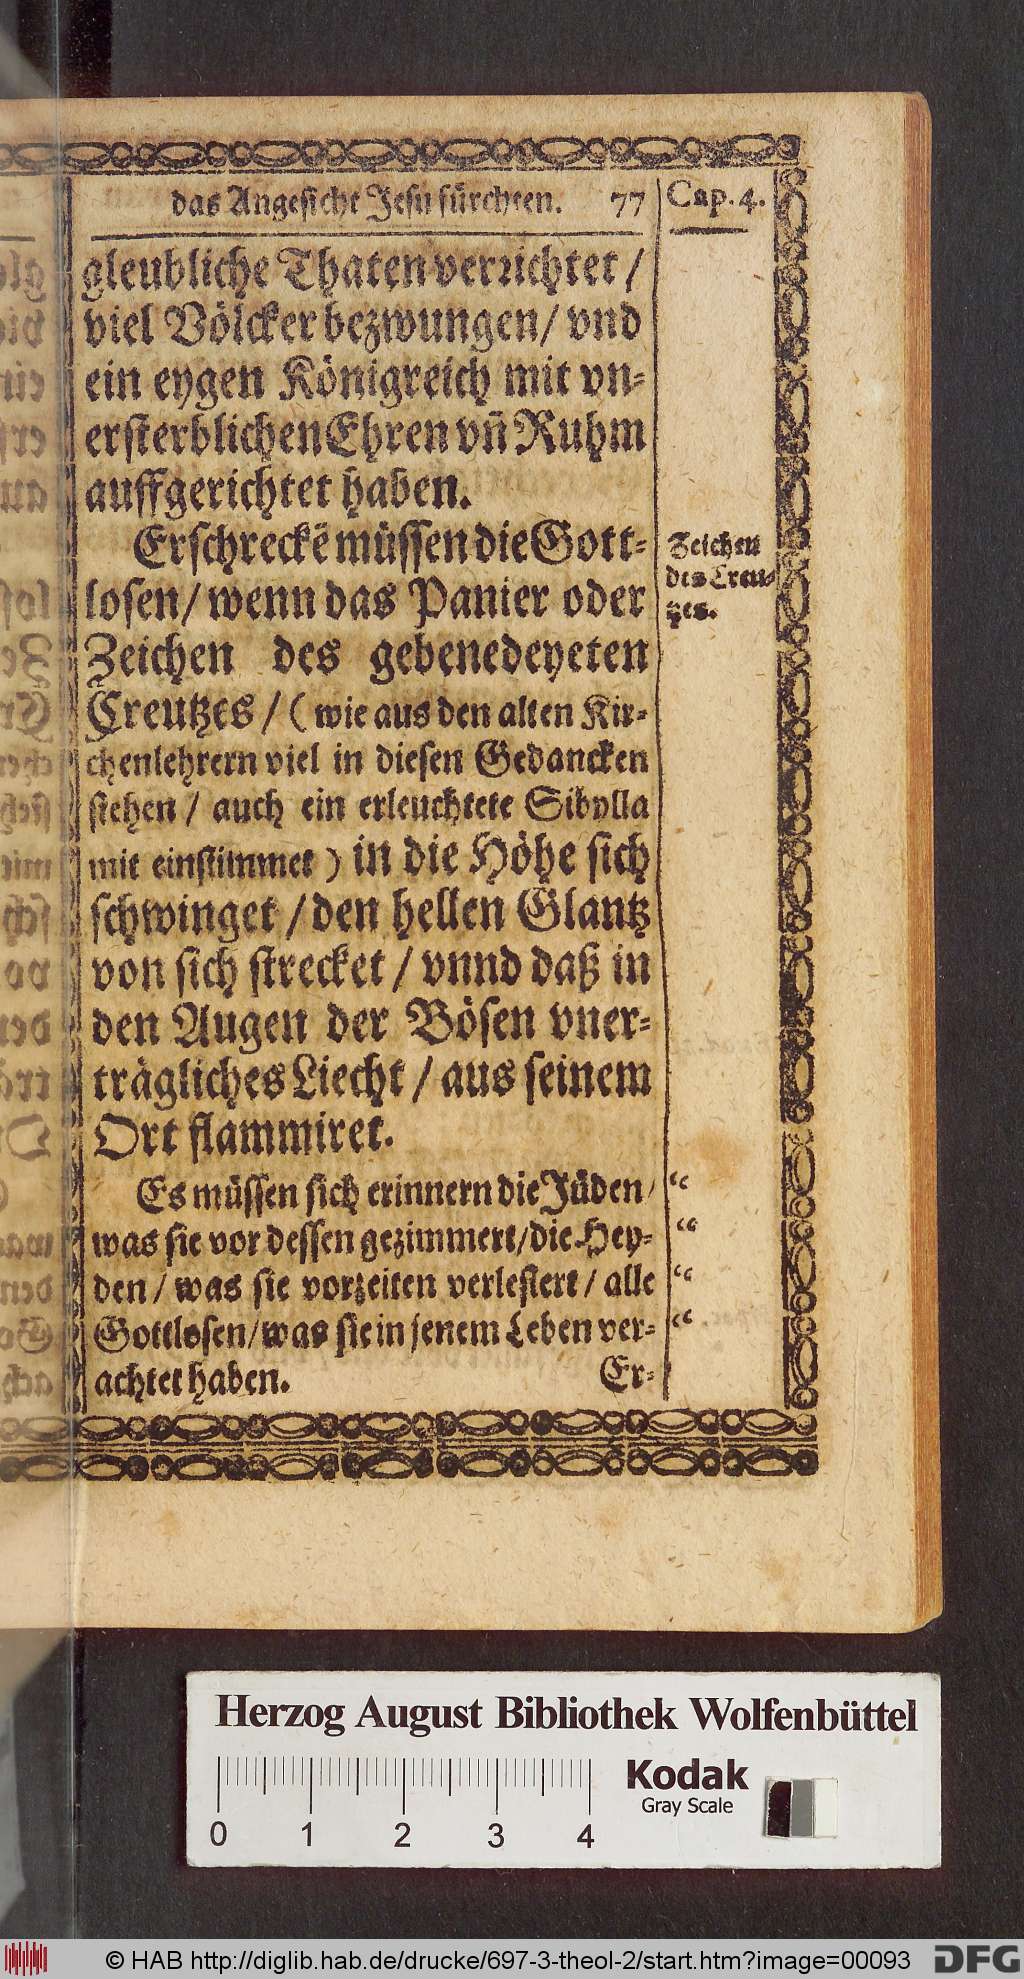 das Angesicht Jesu fürchten. 77 Cap. 4.
gleubliche Thaten verrichtet /
viel Völcker bezwungen / vnd
ein eygen Königreich mit vn-
ersterblichen Ehren vñ Ruhm
auffgerichtet haben.
Erschreckẽ müssen die Gott-
losen / wenn das Panier oder
Zeichen des gebenedeyeten
Creutzes / ( wie aus den alten Kir-
chenlehrern viel in diesen Gedancken
stehen / auch ein erleuchtete Sibylla
mit einstimmet ) in die Höhe sich
schwinget / den hellen Glantz
von sich strecket / vnnd daß in
den Augen der Bösen vner-
trägliches Liecht / aus seinem
Ort flammiret.
Es müssen sich erinnern die Jüden /
was sie vor dessen gezimmert / die Hey-
den / was sie vorzeiten verlestert / alle
Gottlosen / was sie in jenem Leben ver-
achtet haben. Er-
Zeichen
des Creu-
tzes.
“
“
“
“
Herzog August Bibliothek Wolfenbüttel
Kodak
Gray Scale
0 1 2 3 4
© HAB http://diglib.hab.de/drucke/697-3-theol-2/start.htm?image=00093 DFG